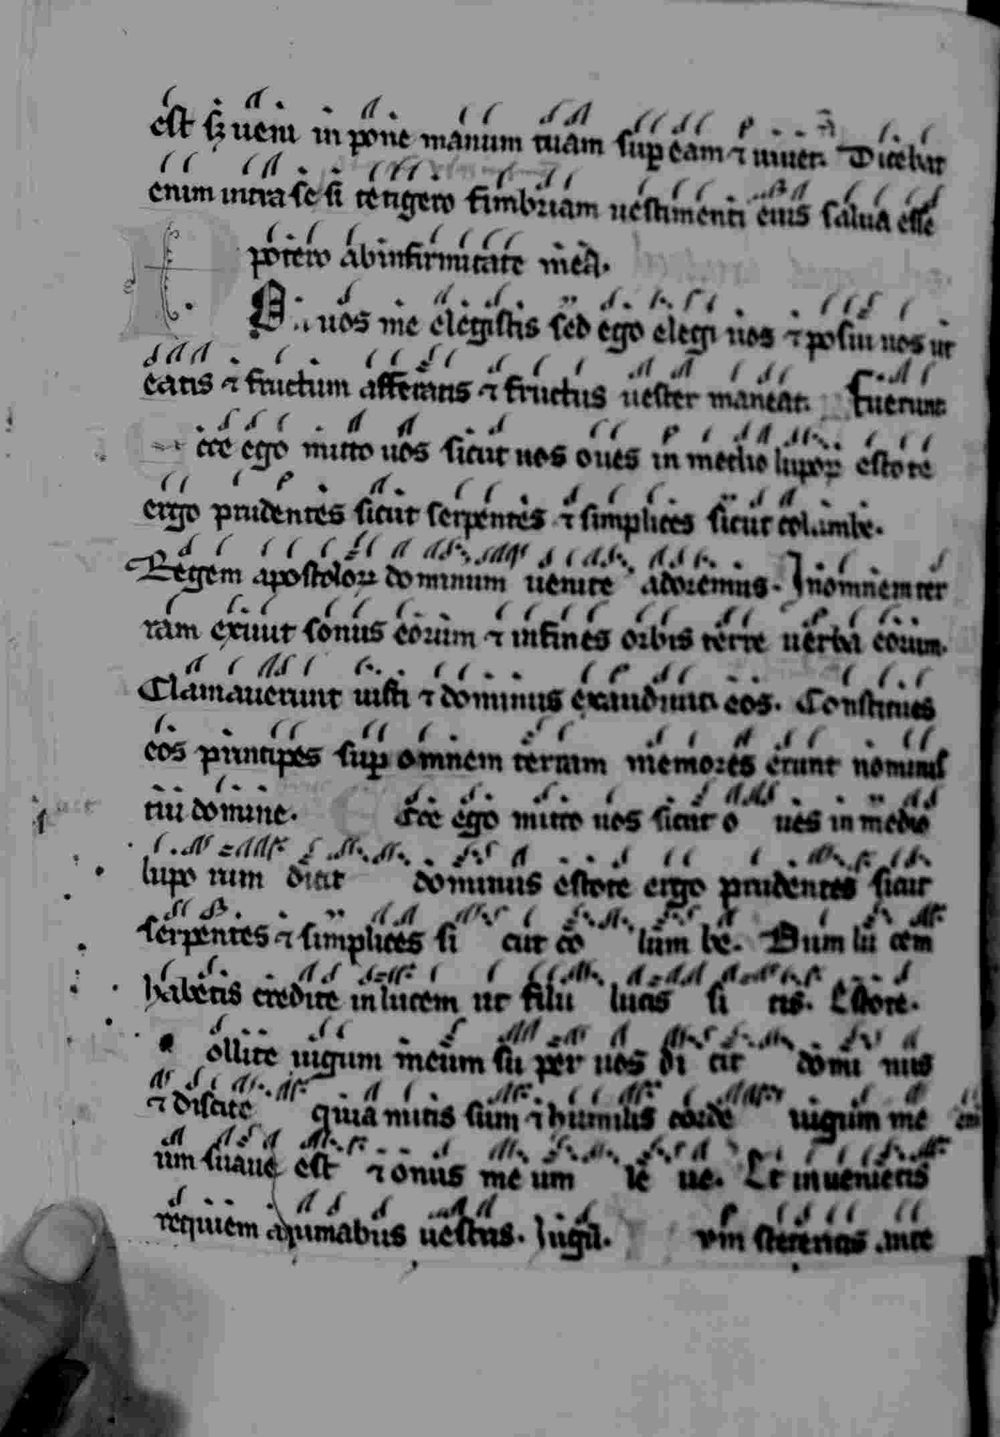 est sꝫ ueni inpone manum tuam sup eam ⁊ uiuet. Dicebat
enim intra se si tetigero fimbriam uestimenti eius salua esse
potero ab infirmitate mea.
N.. uos me elegistis sed ego elegi uos ⁊ posui uos ut
eatis ⁊ fructum afferatis ⁊ fructus uester maneat. Fuerunt
cce ego mitto uos sicut uos oues in medio lupoꝝ estote
ergo prudentes sicut serpentes ⁊ simplices sicut columbe.
Regem apostoloꝝ dominum uenite adoremus. In omnem ter
ram exiuit sonus eorum ⁊ in fines orbis terre uerba eorum.
Clamauerunt iusti ⁊ dominus exaudiuit eos. Constitues
eos principes sup omnem terram memores erunt nominis
tui domine. Ecce ego mitto uos sicut o ues in medio
lupo rum dicit dominus estote ergo prudentes sicut
serpentes ⁊ simplices si cut co lum be. Dum lu cem
habetis credite in lucem ut filii lucis si tis. Estote.
ollite iugum meum su per uos di cit domi nus
⁊ discite quia mitis sum ⁊ humilis corde iugum me eni
um suaue est ⁊ onus me um le ue. Et inuenietis
requiem animabus uestris. Iugū. um steteritis ante